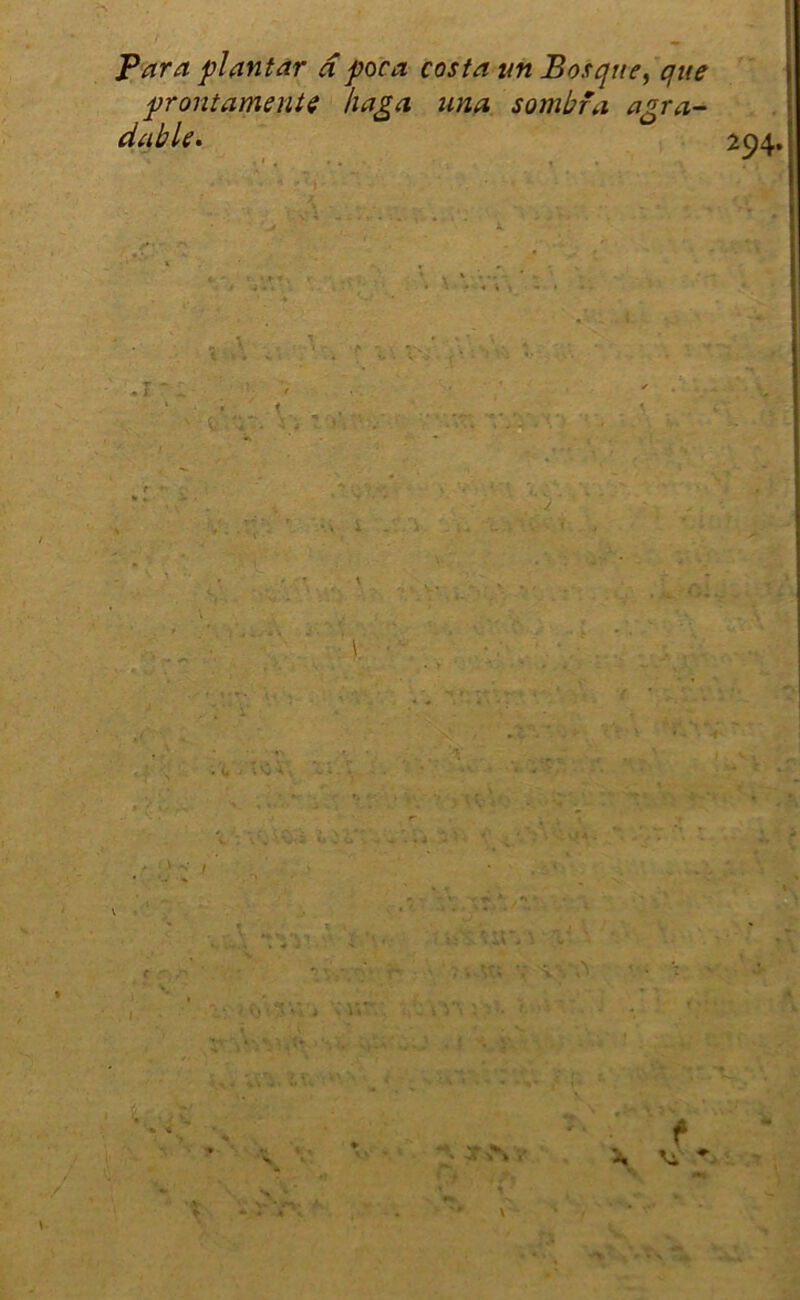 Para plantar á poca costa un Bosque, que
prontamente haga una sombra agra-
dable. 294.